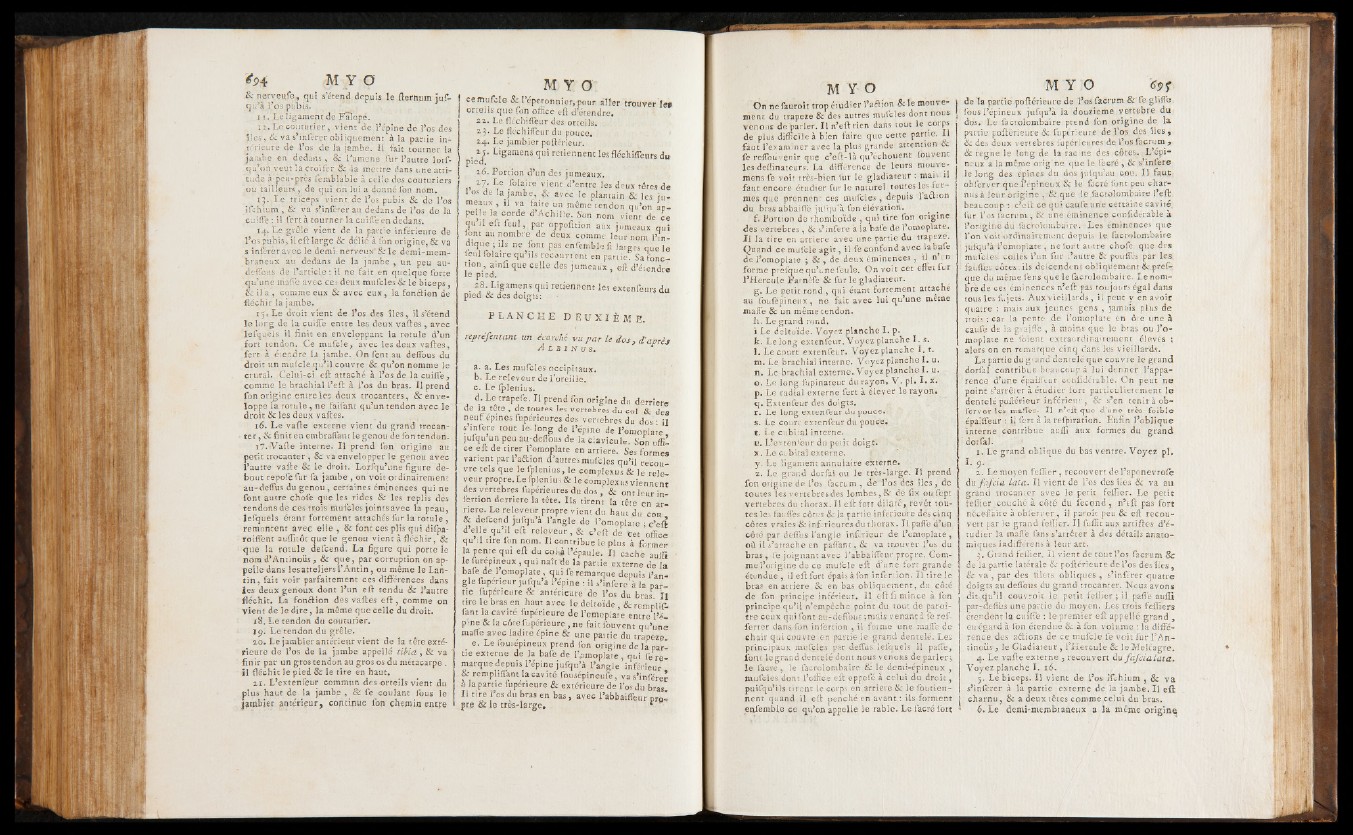 694 MYO
& nerveuſe, qui s'étend depuis le ſternum juſ-
qu'à l'os pubis.
11. Le ligament de Falope.
12. Le couturier, vient de l'épine de l'os des
îles, & va s'inſérer obliquement à la partie in-
térieure de l'os de la jambe. Il fait tourner la
jambe en dedans, & l'amene ſur l'autre lorſ-
qu'on veut la croiſer & la mettre dans une atti-
tude à peu-près ſemblable à celle des couturiers
ou tailleurs, de qui on lui a donné ſon nom.
13. Le triceps vient de l'os pubis & de l'os
iſchium, & va s'inſérer au dedans de l'os de la
cuiſſe : il ſert à tourner la cuiſſe en dedans.
14. Le grêle vient de la partie inférieure de
l'os pubis, il eſt large & délié à ſon origine, & va
s'inſérer avec le demi-nerveux & le demi-mem-
braneux au dedans de la jambe, un peu au-
deſſous de l'article : il ne fait en quelque ſorte
qu'une maſſe avec ces deux muſcles & le biceps,
& il a, comme eux & avec eux, la fonction de
fléchir la jambe.
15. Le droit vient de l'os des îles, il s'étend
le long de la cuiſſe entre les deux vaſtes, avec
leſquels il finit en enveloppant la rotule d'un
fort tendon. Ce muſcle, avec les deux vaſtes,
ſert à étendre la jambe. On ſent au deſſous du
droit un muſcle qu'il couvre & qu'on nomme le
crural. Celui-ci eſt attaché à l'os de la cuiſſe,
comme le brachial l'eſt à l'os du bras. Il prend
ſon origine entre les deux trocanters, & enve-
loppe la rotule, ne faiſant qu'un tendon avec le
droit & les deux vaſtes.
16. Le vaſte externe vient du grand trocan-
ter, & finit en embraſſant le genou de ſon tendon.
17. Vaſte interne. Il prend ſon origine au
petit trocanter, & va envelopper le genou avec
l'autre vaſte & le droit. Lorſqu'une figure de-
bout repoſe ſur ſa jambe, on voit ordinairement
au-deſſus du genou, certaines éminences qui ne
ſont autre choſe que les rides & les replis des
tendons de ces trois muſcles joints avec la peau,
leſquels étant fortement attachés ſur la rotule,
remontent avec elle, & font ces plis qui diſpa-
roiſſent auſſitôt que le genou vient à fléchir, &
que la rotule deſcend. La figure qui porte le
nom d'Antinoüs, & que, par corruption on ap-
pelle dans les atteliers l'Antin, ou même le Lan-
tin, fait voir parfaitement ces différences dans
les deux genoux dont l'un eſt tendu & l'autre
fléchit. La fonction des vaſtes eſt, comme on
vient de le dire, la même que celle du droit.
18. Le tendon du couturier.
19. Le tendon du grêle.
20. Le jambier antérieur vient de la tête exté-
rieure de l'os de la jambe appellé tibia, & va
finir par un gros tendon au gros os du métacarpe.
Il fléchit le pied & le tire en haut.
21. L'extenſeur commun des orteils vient du
plus haut de la jambe, & ſe coulant ſous le
jambier antérieur, continue ſon chemin entre
MYO
ce muſcle & l'éperonnier, pour aller trouver les
orteils que ſon office eſt d'étendre.
22. Le fléchiſſeur des orteils.
23. Le fléchiſſeur du pouce.
24. Le jambier poſtérieur.
25. Ligamens qui retiennent les fléchiſſeurs du
pied.
26. Portion d'un des jumeaux.
27. Le ſolaire vient d'entre les deux têtes de
l'os de la jambe, & avec le plantain & les ju-
meaux, il va faire un même tendon qu'on ap-
pelle la corde d'Achille. Son nom vient de ce
qu'il eſt ſeul, par oppoſition aux jumeaux qui
ſont au nombre de deux comme leur nom l'in-
dique ; ils ne ſont pas enſemble ſi larges que le
ſeul ſolaire qu'ils recouvrent en partie. Sa fonc-
tion, ainſi que celle des jumeaux, eſt d'étendre
le pied.
28. Ligamens qui retiennent les extenſeurs du
pied & des doigts.
PLANCHE DEUXIÈME.
repréſentant un écorché vu par le dos, d'après
ALBINUS.
a. a. Les muſcles occipitaux.
b. Le releveur de l'oreille.
c. Le ſplenius.
d. Le trapeſe. Il prend ſon origine du derriere
de la tête, de toutes les vertebres du col & des
neuf épines ſupérieures des vertebres du dos : il
s'inſere tout le long de l'épine de l'omoplate,
juſqu'un peu au-deſſous de la clavicule. Son offi-
ce eſt de tirer l'omoplate en arriere. Ses formes
varient par l'action d'autres muſcles qu'il recou-
vre tels que le ſplenius, le complexus & le rele-
veur propre. Le ſplenius & le complexus viennent
des vertebres ſupérieures du dos, & ont leur in-
ſertion derriere la tête. Ils tirent la tête en ar-
riere. Le releveur propre vient du haut du cou,
& deſcend juſqu'à l'angle de l'omoplate ; c'eſt
d'elle qu'il eſt releveur, & c'eſt de cet office
qu'il tire ſon nom. Il contribue le plus à former
la pente qui eſt du col à l'épaule. Il cache auſſi
le ſurépineux, qui naît de la partie externe de la
baſe de l'omoplate, qui ſe remarque depuis l'an-
gle ſupérieur juſqu'à l'épine : il s'inſere à la par-
tie ſupérieure & antérieure de l'os du bras. Il
tire le bras en haut avec le deltoide, & rempliſ-
ſant la cavité ſupérieure de l'omoplate entre l'é-
pine & la côte ſupérieure, ne fait ſouvent qu'une
maſſe avec ladite épine & une partie du trapeze.
e. Le ſousépineux prend ſon origine de la par-
tie externe de la baſe de l'omoplate, qui ſe re-
marque depuis l'épine juſqu'à l'angle inférieur,
& rempliſſant la cavité ſousépineuſe, va s'inſérer
à la partie ſupérieure & extérieure de l'os du bras.
Il tire l'os du bras en bas, avec l'abbaiſſeur pro-
pre & le très-large.
MYO
On ne ſauroit trop étudier l'action & le mouve-
ment du trapeze & des autres muſcles dont nous
venons de parler. Il n'eſt rien dans tout le corps
de plus difficile à bien faire que cette partie. Il
faut l'examiner avec la plus grande attention &
ſe reſſouvenir que c'eſt-là qu'échouent ſouvent
les deſſinateurs. La différence de leurs mouve-
mens ſe voit très-bien ſur le gladiateur : mais il
faut encore étudier ſur le naturel toutes les for-
mes que prennent ces muſcles, depuis l'action
du bras abbaiſſé juſqu'à ſon élévation.
f. Portion du rhomboïde, qui tire ſon origine
des vertebres, & s'inſere à la baſe de l'omoplate.
Il la tire en arriere avec une partie du trapeze.
Quand ce muſcle agit, il ſe confond avec la baſe
de l'omoplate ; &, de deux éminences, il n'en
forme preſque qu'une ſeule. On voit cet effet ſur
l'Hercule Farnèſe & ſur le gladiateur.
g. Le petit rond, qui étant fortement attaché
au ſouſépineux, ne fait avec lui qu'une même
maſſe & un même tendon.
h. Le grand rond.
i. Le deltoïde. Voyez planche I. p.
k. Le long extenſeur. Voyez planche I. s.
l. Le court extenſeur. Voyez planche I. t.
m. Le brachial interne. Voyez planche I. u.
n. Le brachial externe. Voyez planche I. u.
o. Le long ſupinateur du rayon, V. pl. I. x.
p. Le radial externe ſert à élever le rayon.
q. Extenſeur des doigts.
r. Le long extenſeur du pouce.
s. Le court extenſeur du pouce.
t. Le cubital interne.
u. L'extenſeur du petit doigt.
x. Le cubital externe.
y. Le ligament annulaire externe.
z. Le grand dorſal ou le très-large. Il prend
ſon origine de l'os ſacrum, de l'os des îles, de
toutes les vertebres des lombes, & de ſix ou ſept
vertebres du thorax. Il eſt fort dilaté, revêt tou-
tes les fauſſes côtes & la partie inférieure des cinq
côtes vraies & inférieures du thorax. Il paſſe d'un
côté par deſſus l'angle inférieur de l'omoplate,
où il s'attache en paſſant, & va trouver l'os du
bras, ſe joignant avec l'abbaiſſeur propre. Com-
me l'origine de ce muſcle eſt d'une fort grande
étendue, il eſt fort épais à ſon inſertion. Il tire le
bras en arriere & en bas obliquement, du côté
de ſon principe inférieur. Il eſt ſi mince à ſon
principe qu'il n'empêche point du tout de paroî-
tre ceux qui ſont au-deſſous ; mais venant à ſe reſ-
ſerrer dans ſon inſertion, il forme une maſſe de
chair qui couvre en partie le grand dentelé. Les
principaux muſcles par deſſus leſquels il paſſe,
ſont le grand dentelé dont nous venons de parler ;
le ſacré, le ſacrolombaire & le demi-épineux,
muſcles dont l'office eſt oppoſé à celui du droit,
puiſqu'ils tirent le corps en arriere & le ſoutien-
nent quand il eſt penché en avant : ils forment
enſemble ce qu'on appelle le rable. Le ſacré ſort
MYO 695
de la partie poſtérieure de l'os ſacrum & ſe gliſſe
ſous l'épineux juſqu'à la douzieme vertebre du
dos. Le ſacrolombaire prend ſon origine de la
partie poſtérieure & ſupérieure de l'os des îles,
& des deux vertebres ſupérieures de l'os ſacrum,
& regne le long de la racine des côtes. L'épi-
neux a la même origine que le ſacré, & s'inſere
le long des épines du dos juſqu'au cou. Il faut
obſerver que l'épineux & le ſacré ſont peu char-
nus à leur origine, & que le ſacrolombaire l'eſt
beaucoup : c'eſt ce qui cauſe une certaine cavité
ſur l'os ſacrum, & une éminence conſidérable à
l'origine du ſacrolombaire. Les éminences que
l'on voit ordinairement depuis le ſacrolombaire
juſqu'à l'omoplate, ne ſont autre choſe que des
muſcles collés l'un ſur l'autre & pouſſés par les
fauſſes côtes : ils deſcendent obliquement & preſ-
que du même ſens que le ſacrolombaire. Le nom-
bre de ces éminences n'eſt pas toujours égal dans
tous les ſujets. Aux vieillards, il peut y en avoir
quatre : mais aux jeunes gens, jamais plus de
trois ; car la pente de l'omoplate en ôte une à
cauſe de la graiſſe, à moins que le bras ou l'o-
moplate ne ſoient extraordinairement élevés :
alors on en remarque cinq dans les vieillards.
La partie du grand dentelé que couvre le grand
dorſal contribue beaucoup à lui donner l'appa-
rence d'une épaiſſeur conſidérable. On peut ne
point s'arrêter à étudier fort particulierement le
dentelé poſtérieur inférieur, & s'en tenir à ob-
ſerver les maſſes. Il n'eſt que d'une très foible
épaiſſeur : il ſert à la reſpiration. Enfin l'oblique
interne contribue auſſi aux formes du grand
dorſal.
1. Le grand oblique du bas ventre. Voyez pl.
I. 9.
2. Le moyen feſſier, recouvert de l'aponevroſe
du faſcia lata. Il vient de l'os des îles & va au
grand trocanter avec le petit feſſier. Le petit
feſſier couché à côté du ſecond, n'eſt pas fort
néceſſaire à obſerver, il paroît peu & eſt recou-
vert par le grand feſſier. Il ſuffit aux artiſtes d'é-
tudier la maſſe ſans s'arrêter à des détails anato-
miques indifférens à leur art.
3. Grand feſſier. Il vient de tout l'os ſacrum &
de la partie latérale & poſtérieure de l'os des îles,
& va, par des filets obliques, s'inſérer quatre
doigts au deſſous du grand trocanter. Nous avons
dit qu'il couvroit le petit feſſier ; il paſſe auſſi
par-deſſus une partie du moyen. Les trois feſſiers
étendent la cuiſſe : le premier eſt appellé grand,
eu égard à ſon étendue & à ſon volume : la diffé-
rence des actions de ce muſcle ſe voit ſur l'An-
tinoüs, le Gladiateur, l'Hercule & le Méléagre.
4. Le vaſte externe, recouvert du faſcia lata.
Voyez planche I. 16.
5. Le biceps. Il vient de l'os iſchium, & va
s'inſérer à la partie externe de la jambe. Il eſt
charnu, & a deux têtes comme celui du bras.
6. Le demi-membraneux a la même origine